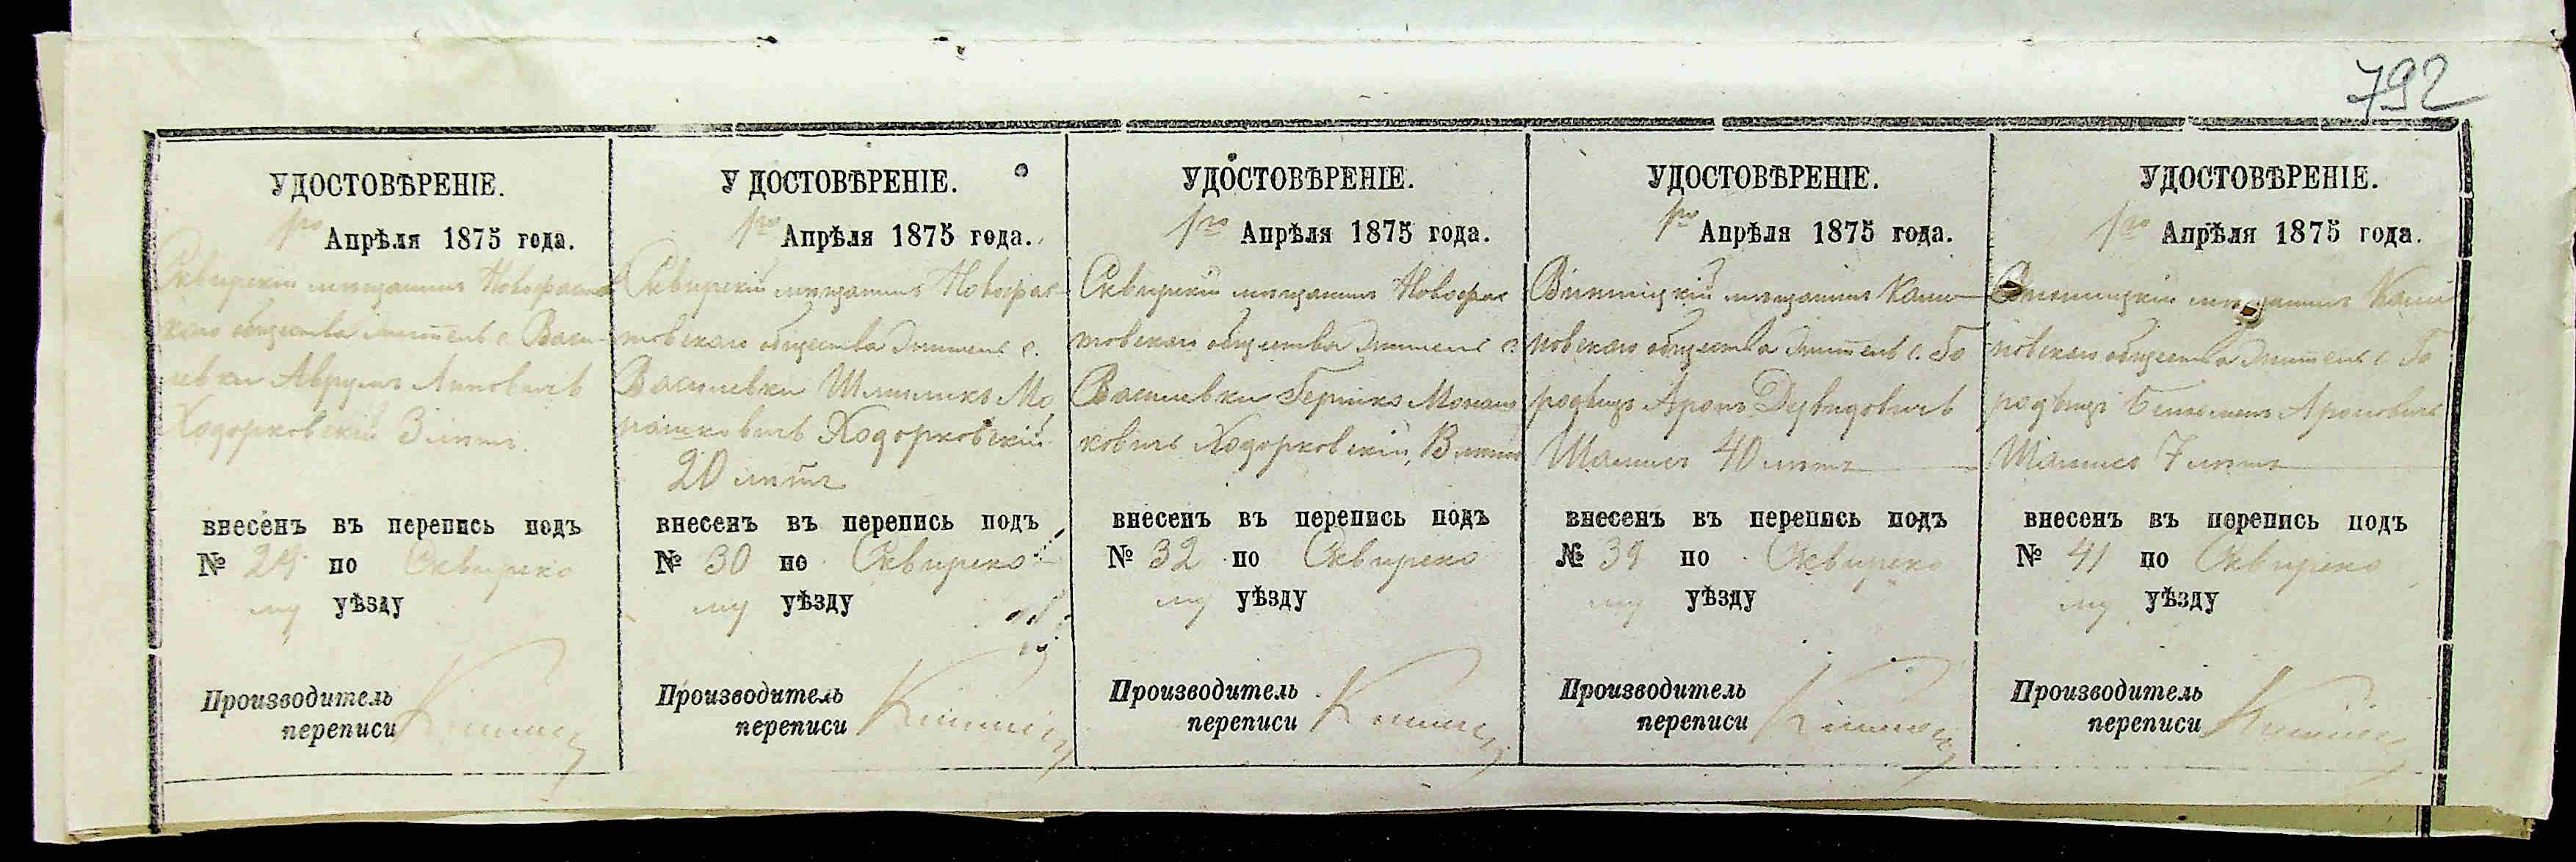 792
УДОСТОВѢРЕНІЕ.
1го Апрѣля 1875 года.
Сквирскій мѣщанинъ Новофастов
скаго общества житель с. Васи-
левки Аврумъ Лейбовичъ
Ходорковскій 3 лѣтъ.
внесенъ въ перепись подъ
№ 29 по Сквирско
му уѣзду
Производитель
переписи
УДОСТОВѢРЕНІЕ.
1го Апрѣля 1875 года.
Сквирскій мѣщанинъ Новофас-
товскаго общества житель с.
Василевки Шмиликъ Мо
шковичъ Ходорковскій
20 лѣтъ
внесенъ въ перепись подъ
№ 30 по Сквирско
му уѣзду
Производитель
переписи
УДОСТОВѢРЕНІЕ.
1го Апрѣля 1875 года.
Сквирскій мѣщанинъ Новофас
товскаго общества житель с.
Василевки Гершко
ковичъ Ходорковскій, лѣтъ
внесенъ въ перепись подъ
№ 32 по Сквирско
му уѣзду
Производитель
переписи
УДОСТОВѢРЕНІЕ.
1го Апрѣля 1875 года.
Винницкій мѣщанинъ Кали-
новскаго общества житель с. Го
родѣцъ Аронъ Дувидовичъ
40 лѣтъ
внесенъ въ перепись подъ
№ 39 по Сквирско
му уѣзду
Производитель
переписи
УДОСТОВѢРЕНІЕ.
1го Апрѣля 1875 года.
Винницкій мѣщанинъ Кали
новскаго общества житель с. Го
родѣцъ Ароновичъ
7 лѣтъ
внесенъ въ перепись подъ
№ 41 по Сквирско
му уѣзду
Производитель
переписи